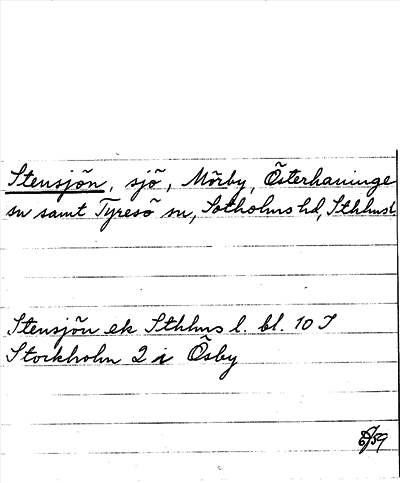 Stensjön, sjö, Mörby, Österhaninge
sn samt Tyresö sn, Sotholms hd, Sthlms l.
Stensjön ek Sthlms l. bl. 10 I
Stockholm 2 i Ösby